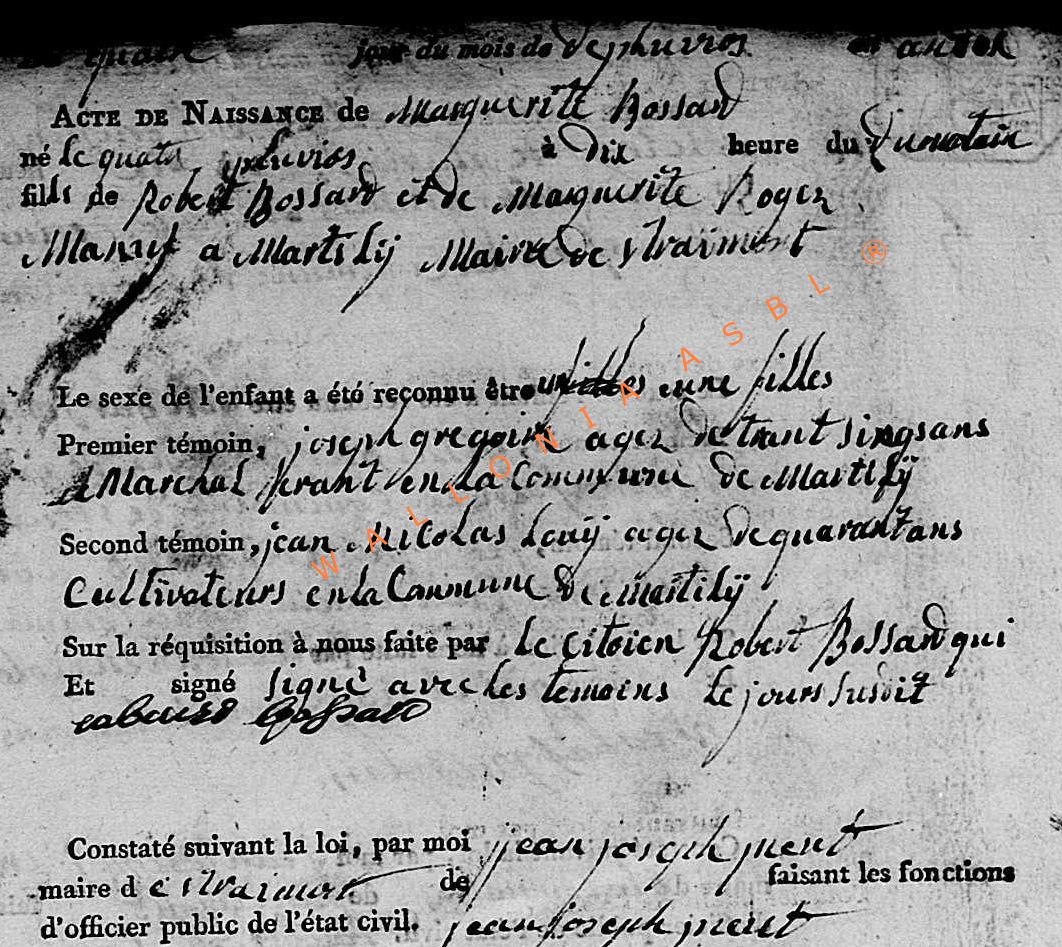 jour du mois de
ACTE DE NAISSANCE de Marguerite Bossard
né le quatr pluvios à dix heure du du matain
fills de Robert Bossard et de Marguerite Roger
a Martilÿ Mairie de straimont
Le sexe de l'enfant a été reconnu être une filles
Premier témoin, joseph gregoire agez de trant sinqsans
Marchal en la Commune de Martilÿ
Second témoin, jean Nicolas Louÿ agez de quarantans
Cultivateurs en la Commune de Martilÿ
Sur la réquisition à nous faite par Le Citoien Robert Bossard qui
Et signé signé avec les temoins Le jours susdit
WALLONIA ASBL ®
Constaté suivant la loi, par moi jean joseph
maire d e straimont de faisant les fonctions
d'officier public de l'état civil. jean joseph